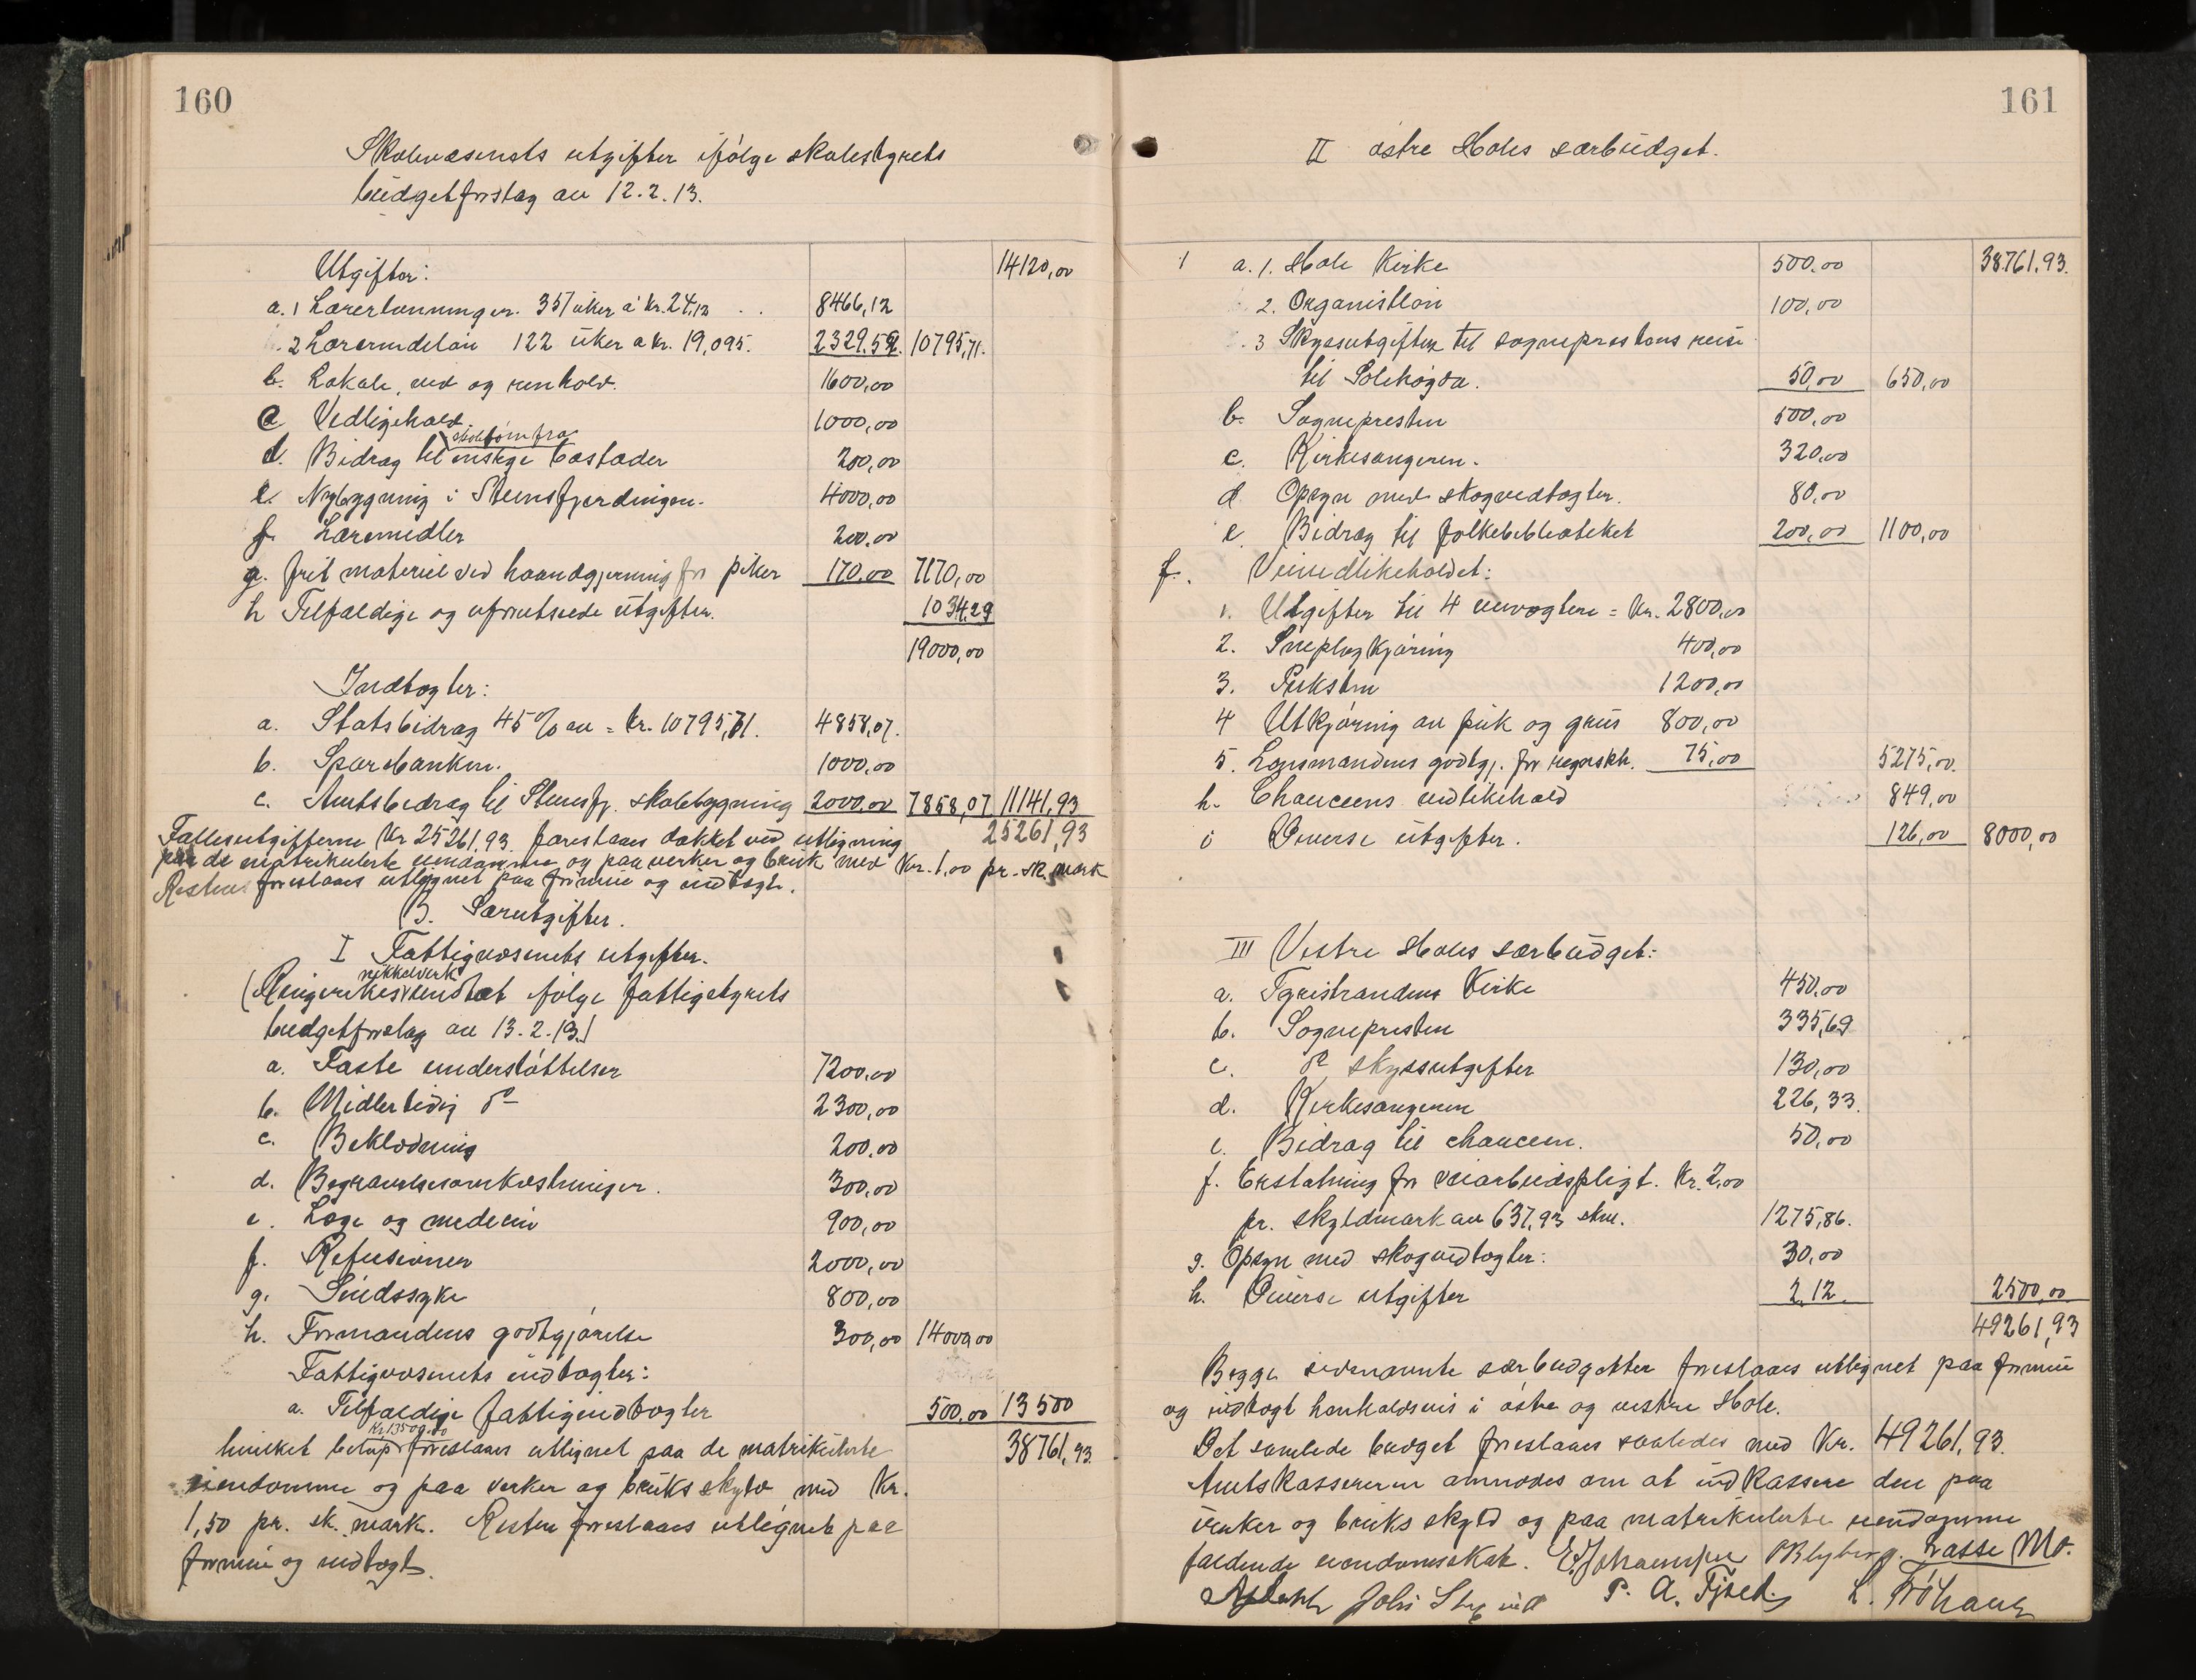 160
Skolevæsenets utgifter ifølge skolestyrets
budgetforslag av 12.2.13.
Utgifter: 14120,00
a. 1 Lærerlønninger. 351 uker a kr. 24,12 . . 8466,12
2 Lærerindeløn 122 uker a kr. 19,095. 2329.59. 10795,71.
b. Lokale, ved og renhold. 1600,00
c Vedligehold 1000,00
skolebørn fra
d. Bidrag til enslige bosteder 200,00
e. Nybygning i Stensfjerdingen. 4000,00
f. Læremidler 200.00
g. frit materiel ved haandgjerning for piker 170.00 7170,00
h Tilfældige og uforutseede utgifter. 1034,29
19000,00
Indtægter:
a. Statsbidrag 45% av = kr. 10795,71. 4858,07.
b. Sparebanken. 1000,00
c. Amtsbidrag til Stensfj. skolebygning 2000.00 7858,07 11141,93
Fællesutgifterne Kr 25261.93. foreslaaes dækket ved utligning 25261,93
paa de matrikulerte eiendomme og paa verker og bruk med Kr. 1,00 pr. sk. mark
Resten foreslaaes utlignet paa formue og indtægt.
B. Særutgifter.
I Fattigvæsenets utgifter.
nikkelverk
(Ringerikes undtat ifølge fattigstyrets
budgetforslag av 13.2.13.)
a. Faste understøttelser 7200,00
b. Midlertidig do 2300,00
c. Beklædning 200.00
d. Begravelsesomkostninger. 300,00
e. Læge og medecin 900,00
f. Refusioner 2000,00
g. Sindssyke 800,00
h. Formandens godtgjørelse 300,00 14000,00
Fattigvæsenets indtægter:
a. Tilfældige fattigindtægter 500.00 13500
Kr 13500.00
hvilket beløp foreslaaes utlignet paa de matrikulerte 38761,93.
eiendomme og paa verker og bruks skyld med Kr.
1,50 pr. sk. mark. Resten foreslaaes utlignet paa
formue og indtægt.
161
II østre Holes særbudget.
1 a. 1. Hole Kirke 500.00 38761,93.
2. Organistløn 100,00
3 Skyssutgifter til sogneprestens reise
til Solihøgda. 50,00 650,00
b. Sognepresten 500.00
c. Kirkesangeren. 320,00
d Opsyn med skogvedtægter. 80,00
e. Bidrag til folkebiblioteket 200,00 1100,00
f. Veivedlikeholdet:
1. Utgifter til 4 veivogtere = Kr. 2800,00
2. Sneplogkjøring 400,00
3. Puksten 1200,00
4 Utkjøring av puk og grus 800,00
5. Lensmandens godtgj. for regnskh. 75,00 5275,00.
h. Chauceens vedlikehold 849,00
i Diverse utgifter. 126,00 8000,00
III Vestre Holes særbudget:
a. Tyristrandens Kirke 450.00
b. Sognepresten 335,69
c. do skyssutgifter 130,00
d. Kirkesangeren 226,33.
e. Bidrag til chauceen. 50,00
f. Erstatning for veiarbeidspligt. Kr. 2,00
pr. skyldmark av 637,93 skm. 1275,86.
g. Opsyn med skogvedtægter: 30,00
h. Diverse utgifter 2,12. 2500,00
49261,93
Begge sidenævnte særbudgetter foreslaaes utlignet paa formue
og indtægt henholdsvis i østre og vestre Hole.
Det samlede budget foreslaaes saaledes med Kr. 49261,93.
Amtskassereren anmodes om at indkassere den paa
verker og bruks skyld og paa matrikulerte eiendomme
faldende eiendomsskat. E. Johannesen OBlyberg. Lasse Mo.
P. A. Fjeld L. Frøhaug